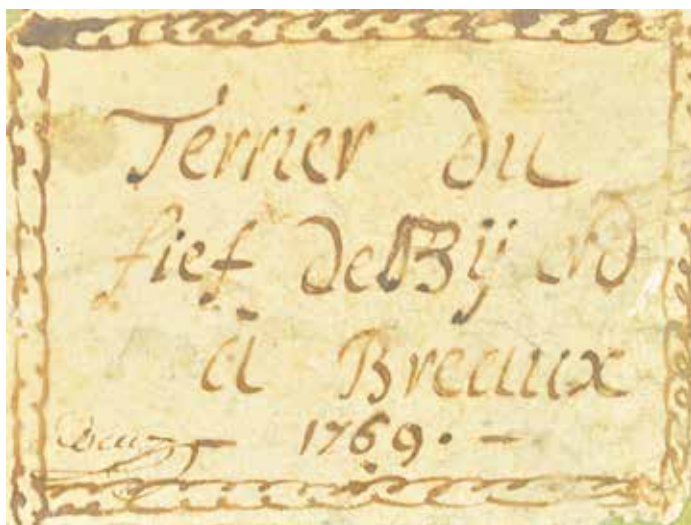 Terrier Du
fief De Bijerd
à Breaux
1769. —